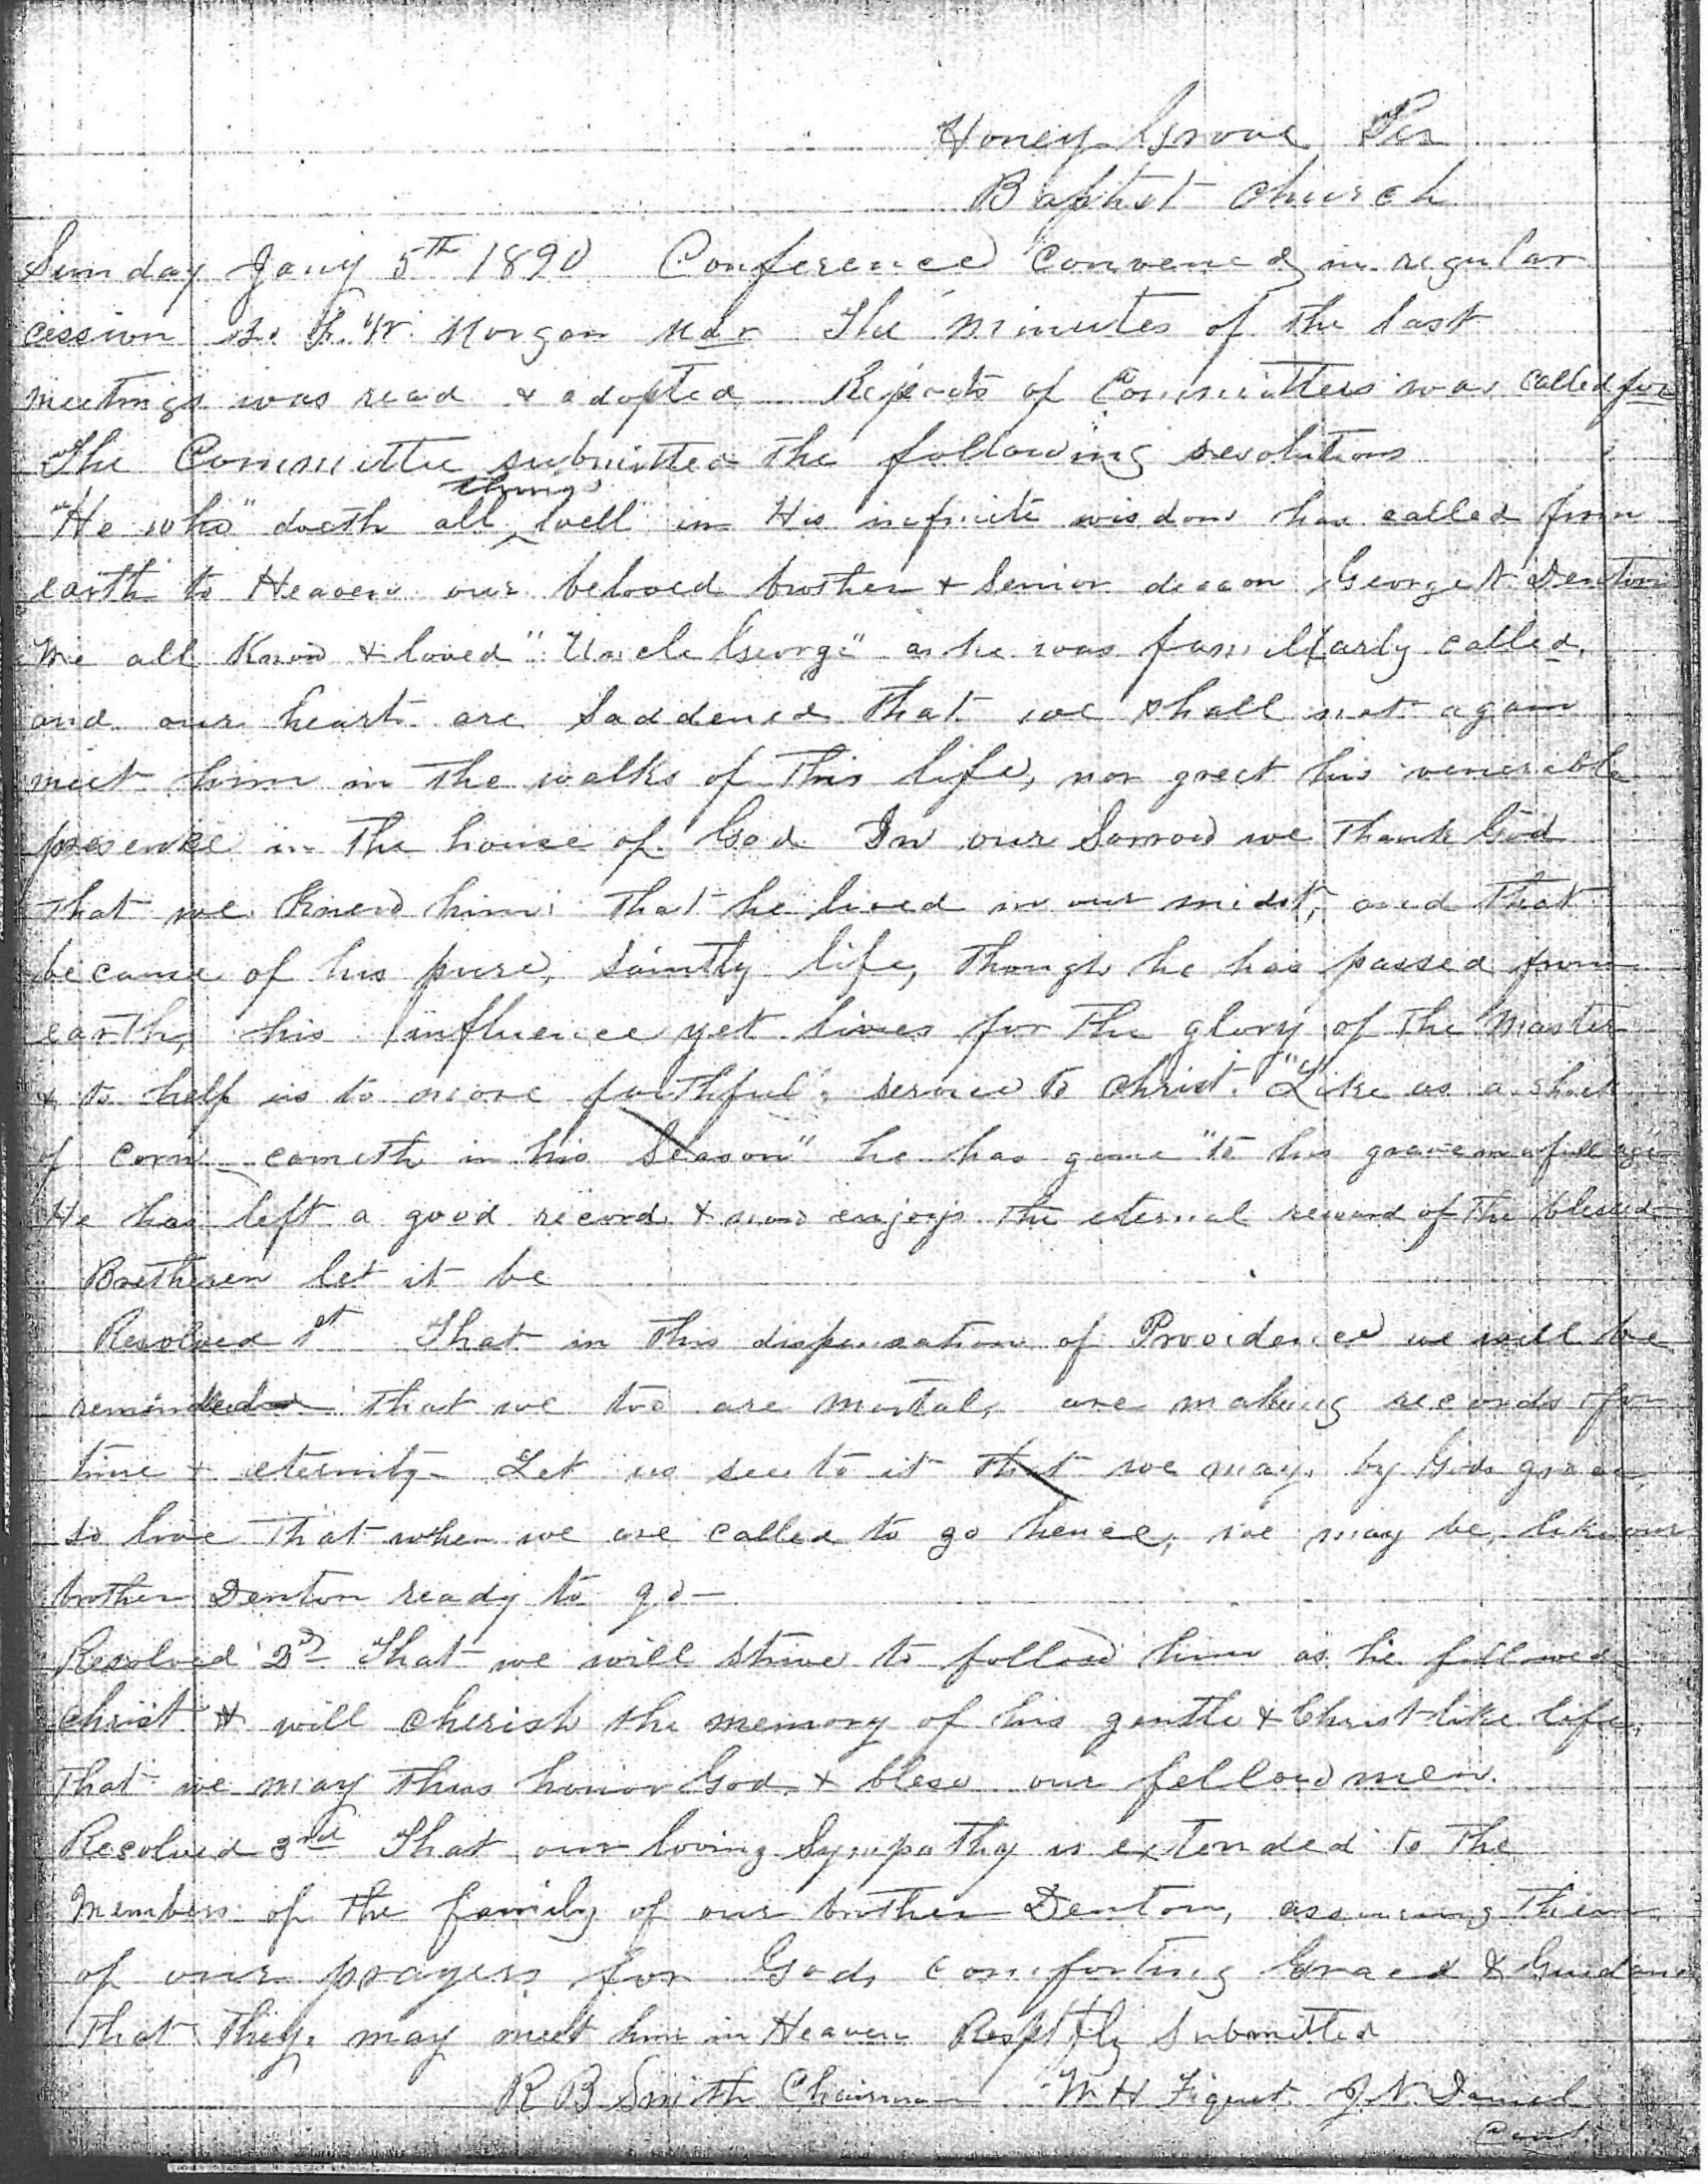 Honey Grove Tex
Baptist Church
Sunday Jany 5th 1890 Conference Convened in regular
cession F. W. Morgan Mdr The minutes of the last
meetings was read & adopted Reports of Committees was called for
The Committee submitted the following resolutions
"He who" doeth all things well in His infinite wisdom has called from
earth to Heaven our beloved brother & Senior deacon George N Denton
We all Know & loved "Uncle George" as he was familiarly called,
and our heart are Saddened that we shall not again
meet him in the walks of this life, nor greet his venerable
presence in the house of God In our Sorrow we Thank God
that we Knew him; That he lived in our midst, and that
because of his pure, Saintly life, Though he has passed from
earth, his influence yet lives for the glory of the Master
& to help us to more faithful service to Christ. "Like as a shock
of corn cometh in his Season" he has gone "to his grave in a full age"
He has left a good record & now enjoys the eternal reward of the blessed
Bretheren let it be
Resolved 1st That in this dispensation of Providence we will be
reminded that we too are mortal, are making records for
time & eternity - Let us see to it that we may, by Gods grace
so live that when we are called to go hence, we may be, like our
brother Denton ready to go -
Resolved 2nd That we will strive to follow him as he followed
Christ & will cherish the memory of his gentle & Christ-like life,
that we may thus honor God & bless our fellow men.
Resolved 3rd That our loving Sympathy is extended to the
Members of the family of our brother Denton, assuring them
of our prayers for Gods comforting Grace & Guidance
that they may meet him in Heaven Resptfly Submitted
R B Smith Chairman W H Fiquet J. N. Daniel
Cont.